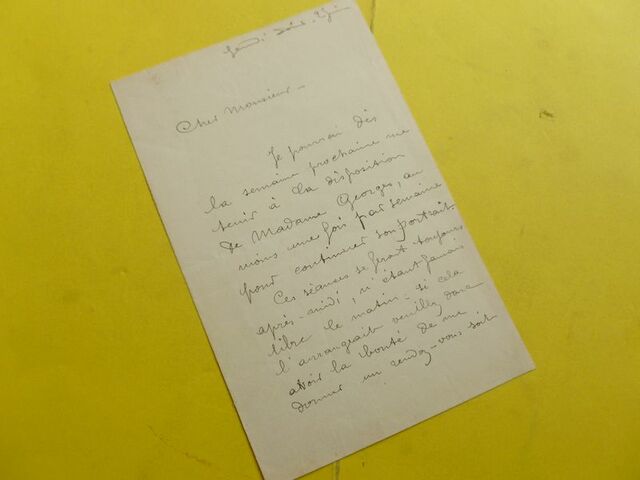 Jeudi soir
Cher Monsieur -
Je pourrai dès
la semaine prochaine me
tenir à la disposition
de Madame Georges, au
moins une fois par semaine
pour continuer son portrait.
Ces séances se ferait toujours
après-midi, n'étant jamais
libre le matin - si cela
l'arrangiait veuillez donc
avoir la bonté de me
donner un rendez-vous soit